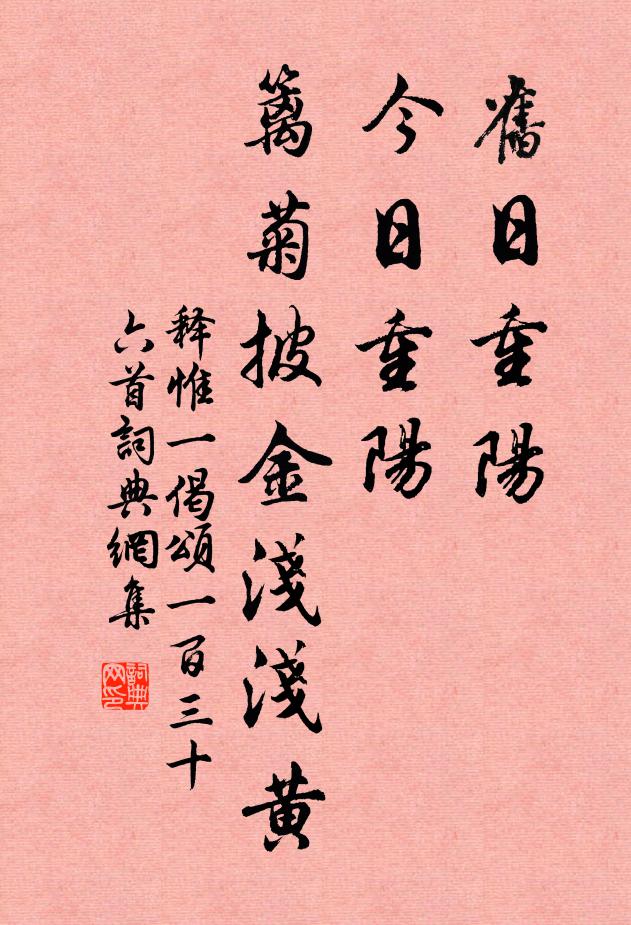 舊日重陽
今日重陽
籬菊披金淺淺黄
释惟一偈頌一百三十
六首詞典網集
詞典网印